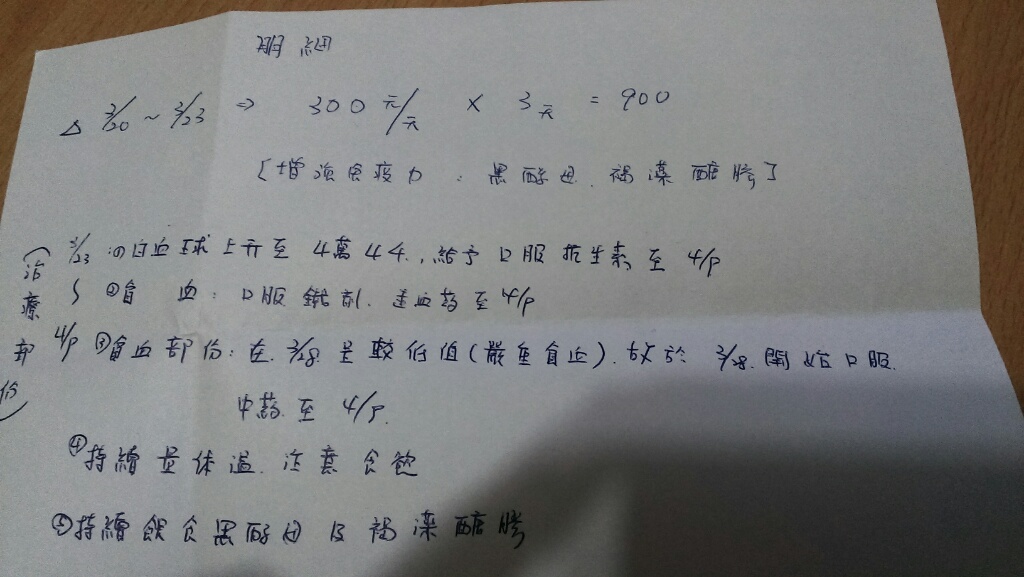 明細
△ 3/20 ~ 3/23 ⇒ 300元/天 × 3天 = 900
[增強免疫力:黑酵母、褐藻醣膠]
(治療部份)
3/23 ①白血球上升至4萬44,給予口服抗生素至4/9
~ ②貧血:口服鐵劑、造血药至4/9
4/9 ③貧血部份:在3/28是較低值(嚴重貧血)、故於3/28開始口服
中药至4/9
④持續量体溫、注意食飲
⑤持續飲食黑酵母及褐藻醣膠